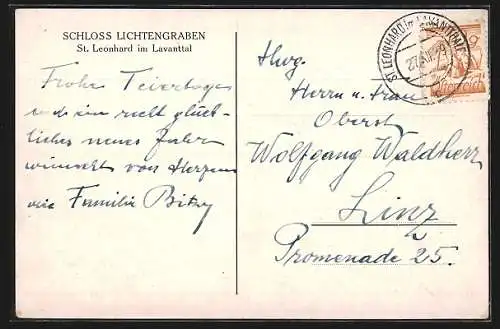 SCHLOSS LICHTENGRABEN
St. Leonhard im Lavanttal
Frohe Feiertage
u. ein recht glück-
liches neues Jahr
wünscht von Herzen
Familie
Hwg.
Herrn u. Frau
Oberst
Wolfgang Waldherr
Linz
Promenade 25.
ST. LEONHARD im LAVANTTALE